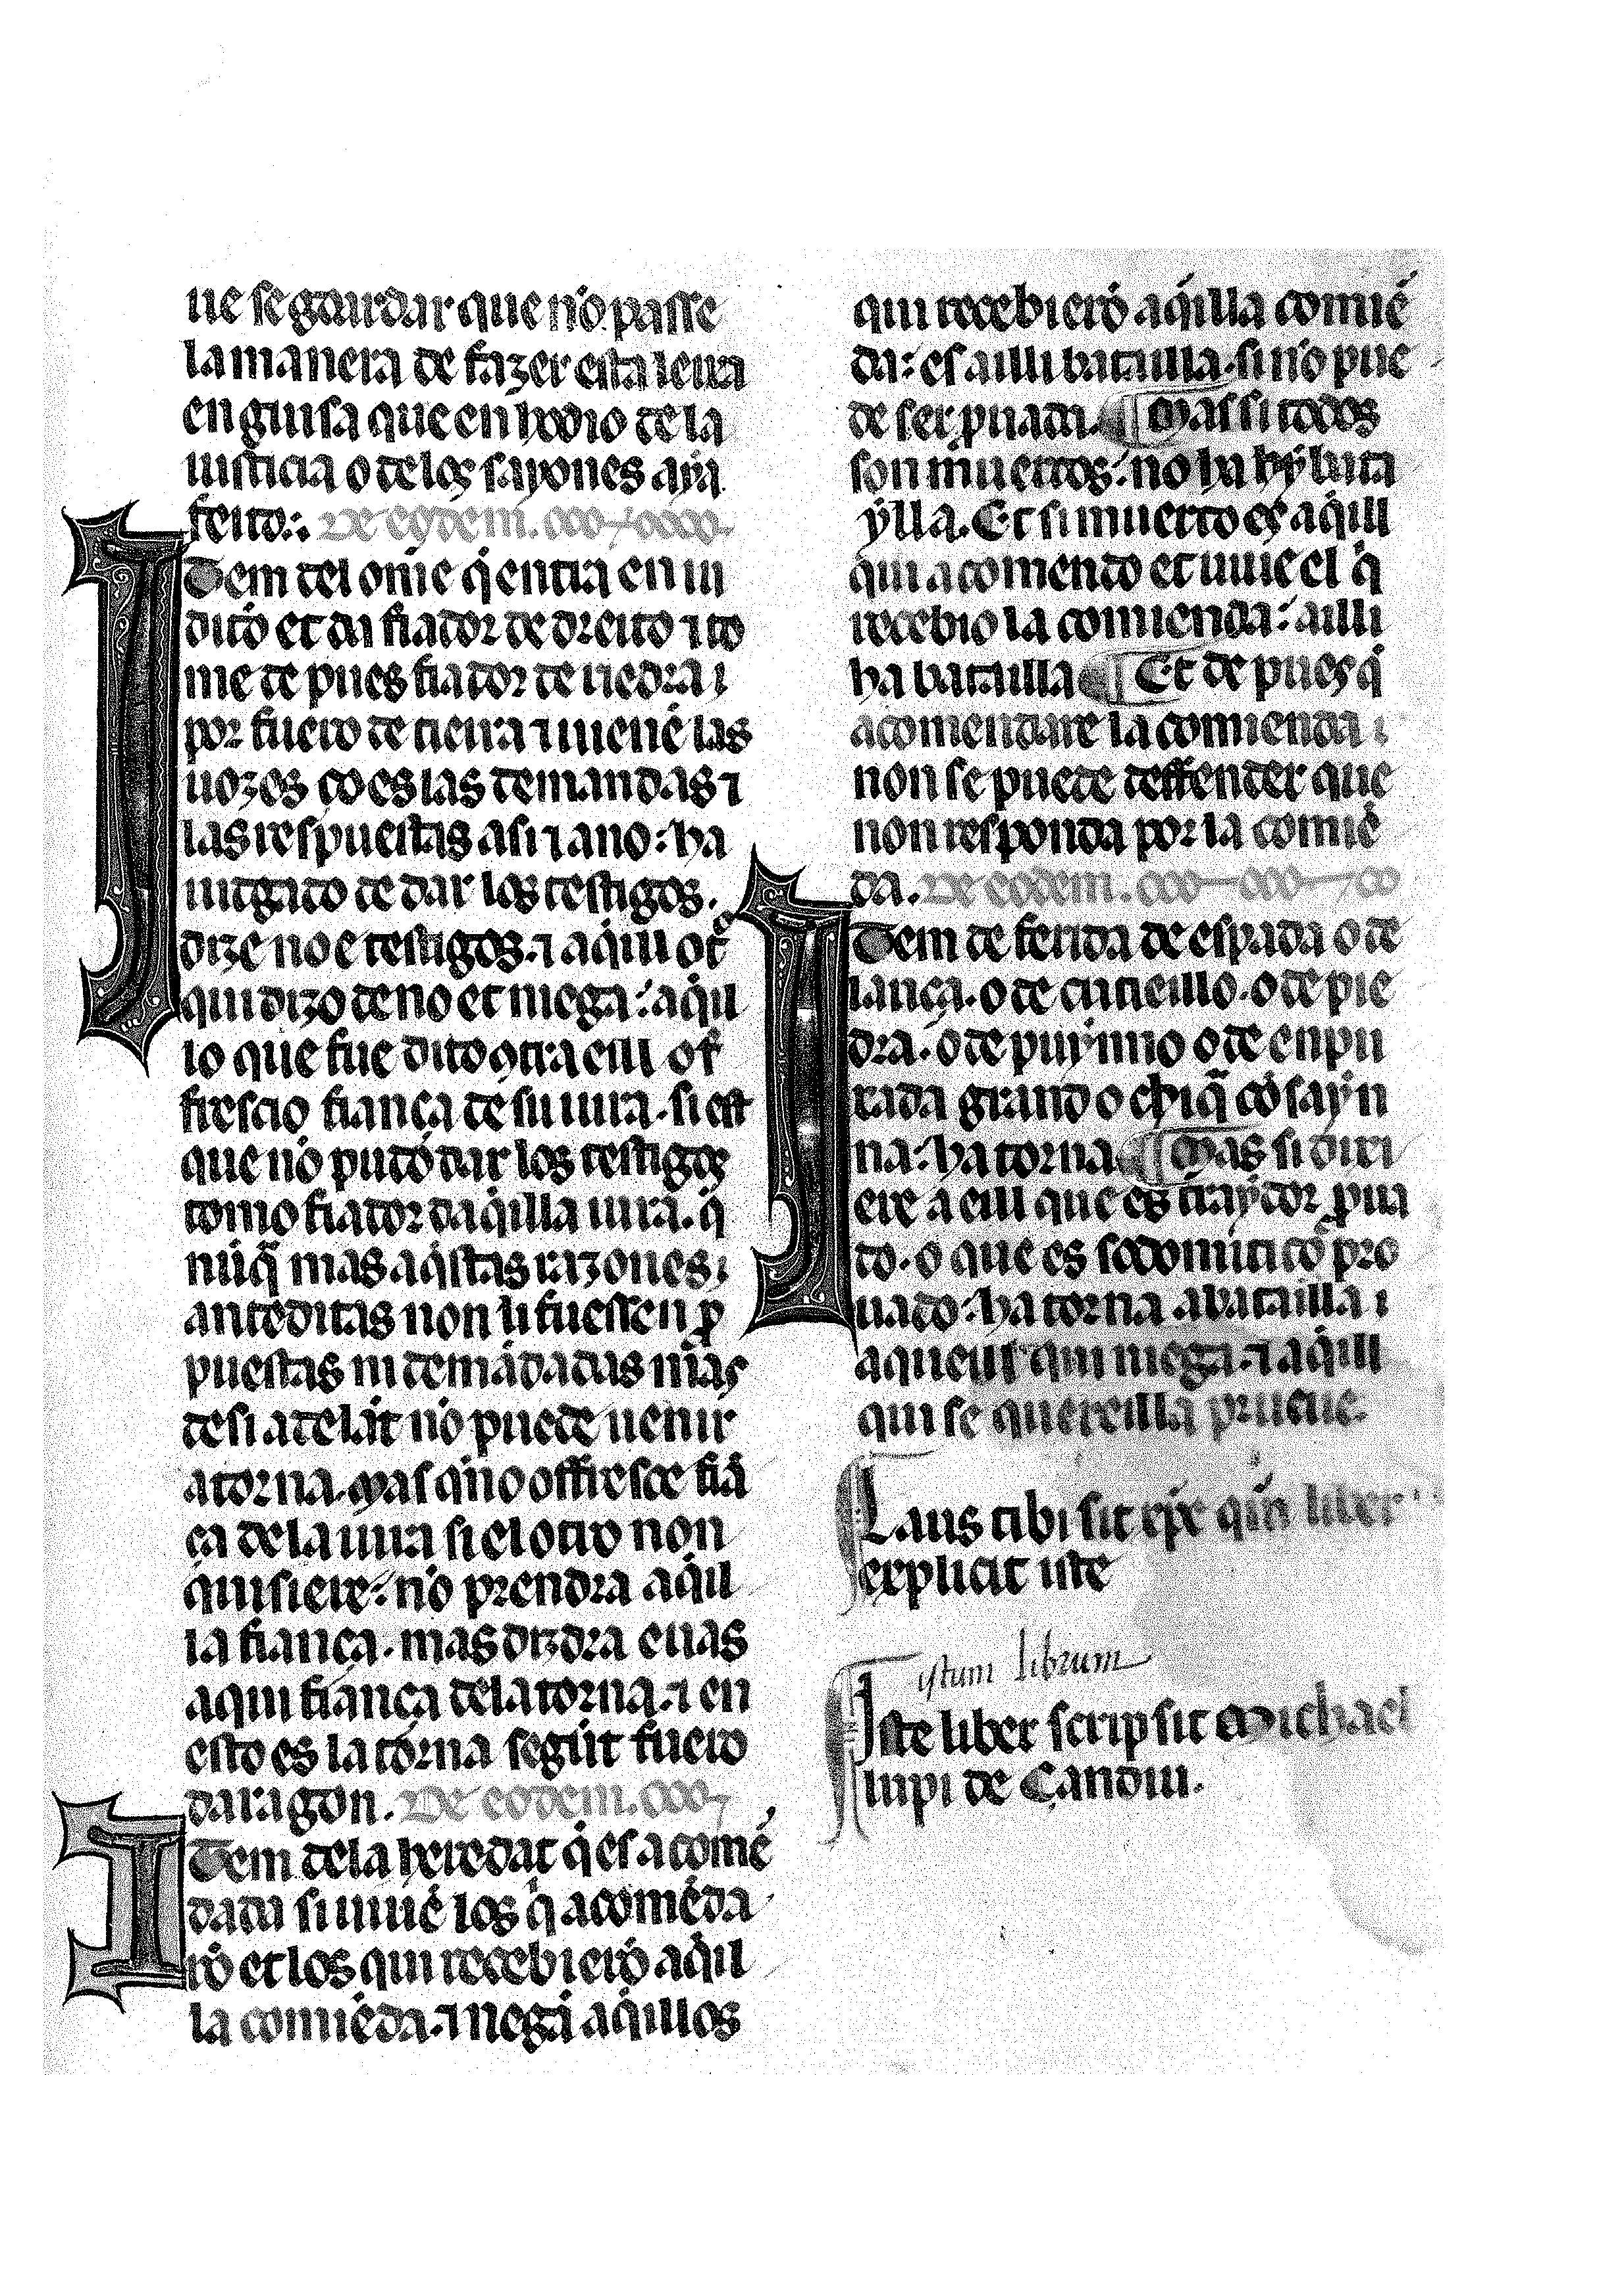 ue se gaurdar que nõ passe
la manera de fazer esta ieura
en guisa que en hodio de la
iusticia o de los sayones aya
feito: De eodem.
Item del omẽ q̃ entra en iu
dicio et da fiador de dreito ⁊ to
me de pues fiador de uedra ⁊
por fuero de tierra ⁊ uienẽ las
uozes ço es las demandas ⁊
las respuestas a si ⁊ a no: ha
iutgado de dar los testigos.
dize no e testigos. ⁊ aq̃ill ot̃
qui dizo de no et niega: aq̃il
lo que fue dito ꝯtra eill of
frescio fiança de su iura. si est
que nõ pudo dar los testigos
tomo fiador daq̃illa iura. q̃
nũq̃ mas aq̃stas razones ⁊
anteditas non li fuessen ꝓ
puestas ni demãdadas mãs
de si adelãt nõ puede uenir
a torna. Mas q̃ no offresce fiã
ça de la iura si el otro non
quisiere: nõ prendra aq̃il
la fiança. mas dizdra euas
aqui fiança de la torna. ⁊ en
esto es la torna segũt fuero
daragon. De eodem.
Item de la heredat q̃ es acomẽ
dada si uiuẽ los q̃ acomẽda
rõ et los qui recebierõ aq̃il
la comiẽda. ⁊ negã aq̃illos
qui recebierõ aq̃illa comiẽ
da: es ailli batailla. si nõ pue
de ser ꝓuada. ¶ Mas si todos
son muertos: no ha hy bata
ylla. Et si muerto es aq̃ill
qui acomendo et uiue el q̃
recebio la comienda: ailli
ha batailla ¶ Et de pues q̃
acomendare la comienda ⁊
non se puede deffender que
non responda por la comiẽ
da. De eodem.
Item de ferida de espada o de
lança. o de cutieillo. o de pie
dra. o de puynno o de enpu
xada grand o chiq̃ cõ sayn
na: ha torna ¶ Mas si dixi
ere a eill que es traydor ꝓua
do. o que es sodomitico pro
uado: ha torna a batailla ⁊
aqueill qui niega. ⁊ aq̃ill
qui se quereilla prueue.
Laus tibi sit xp̃e qm̃ liber
explicit iste
istum librum
Iste liber scripsit Michael
lupi de Çandiu.